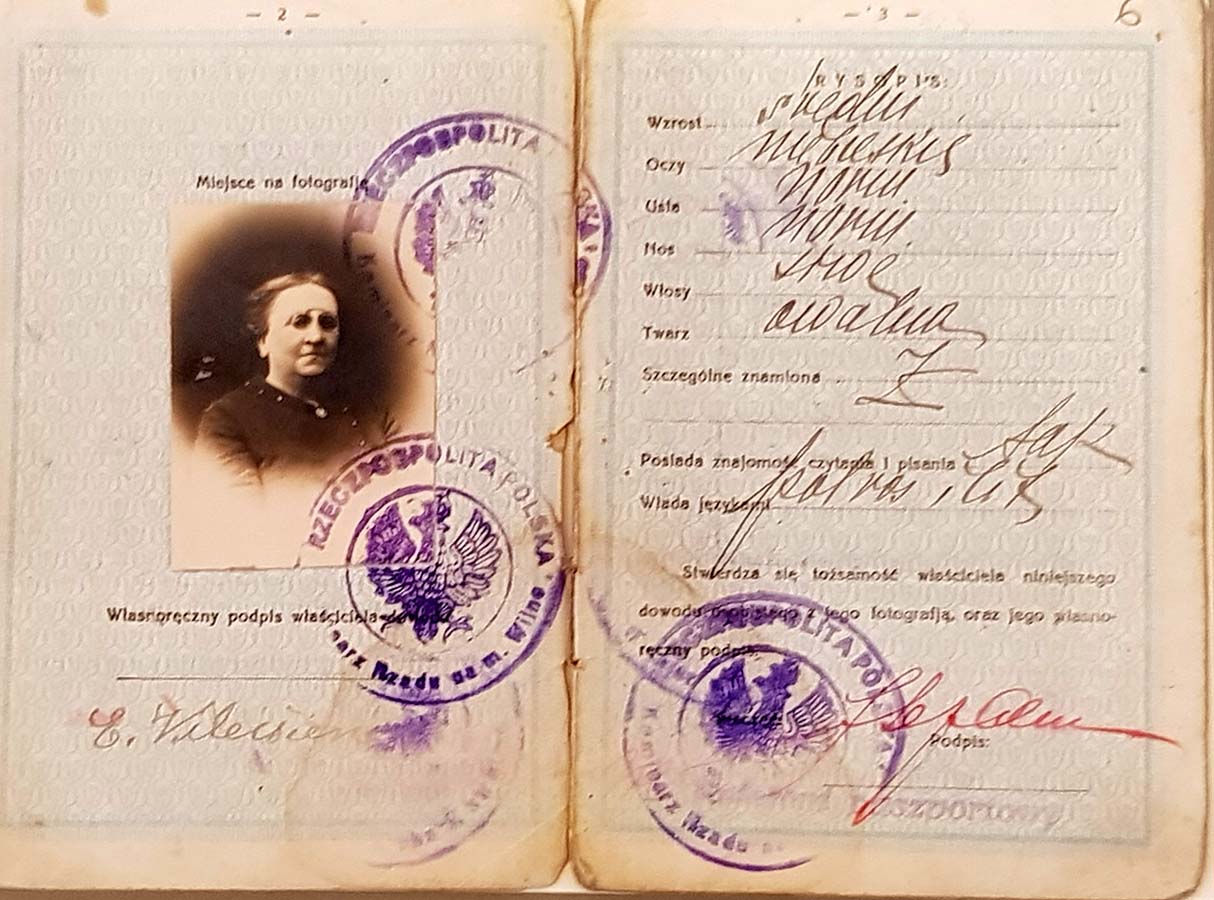 — 2 —
Miejsce na fotografję
RZECZPOSPOLITA
RZECZPOSPOLITA POLSKA
arz Rządu na m. Wilno
Własnoręczny podpis właściciela dowodu
E.
— 3 —
6
RYSOPIS:
Wzrost średni
Oczy niebieskie
Usta norm.
Nos norm.
Włosy siwe
Twarz owalna
Szczególne znamiona
Posiada znajomość czytania i pisania tak
Włada językami pol. ros. i lit.
Stwierdza się tożsamość właściciela niniejszego
dowodu osobistego z jego fotografją, oraz jego własno-
ręczny podpis.
RZECZPOSPOLITA POLSKA
Komisarz Rządu
Podpis:
Paszportowy